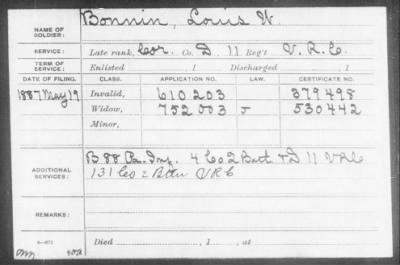 NAME OF SOLDIER: Bonnin, Louis W.
SERVICE: Late rank, Cor. Co. D. 11 Reg't V. R. C.
TERM OF SERVICE: Enlisted , 1 Discharged , 1
DATE OF FILING. CLASS. APPLICATION NO. LAW. CERTIFICATE NO.
1887 May 19 Invalid, 610203 379498
Widow, 752003 J 530442
Minor,
ADDITIONAL SERVICES: B 88 Pa. Inf. 4 Co 2 Batt & D 11 VRC
131 Co 2 Battn VRC
REMARKS:
Died , 1 , at